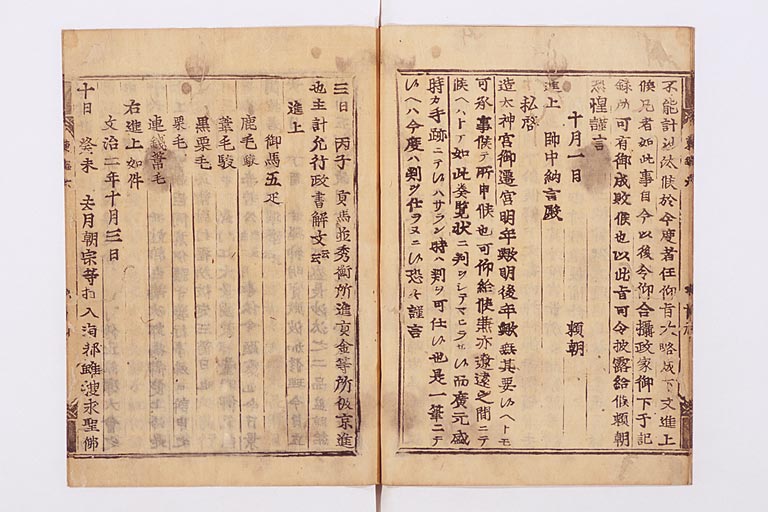 不能計沙汰候於今度者任仰旨大略成下文進上
候凡者如此事自今以後令仰合攝政家御下于記
録所可有御成敗候也以此旨可令披露給候頼朝
恐惶謹言
十月一日　頼朝
進上　師中納言殿
私啓
造太神宮御遷宮明年歟明後年歟無其要ヘトモ
可承事候テ所申候也可仰給候兼亦遼遠之間ニテ
候ヘハトテ如此奏覧状ニ判ヲシテマヒラセ而廣元盛
時カ手跡ニテハサラン時ハ判ヲ可仕也是一筆ニテ
ヘハ今度ハ判ヲ仕ヲヌニ恐々謹言
三日　丙子　貢馬並秀衡所進貢金等所被京進
也主計允行政書解文云云
進上
御馬五疋
鹿毛駮
葦毛駮
黒栗毛
栗毛
連錢葦毛
右進上如件
文治二年十月三日
十日　癸未　去月朝宗等打入海郡雖捜求聖佛